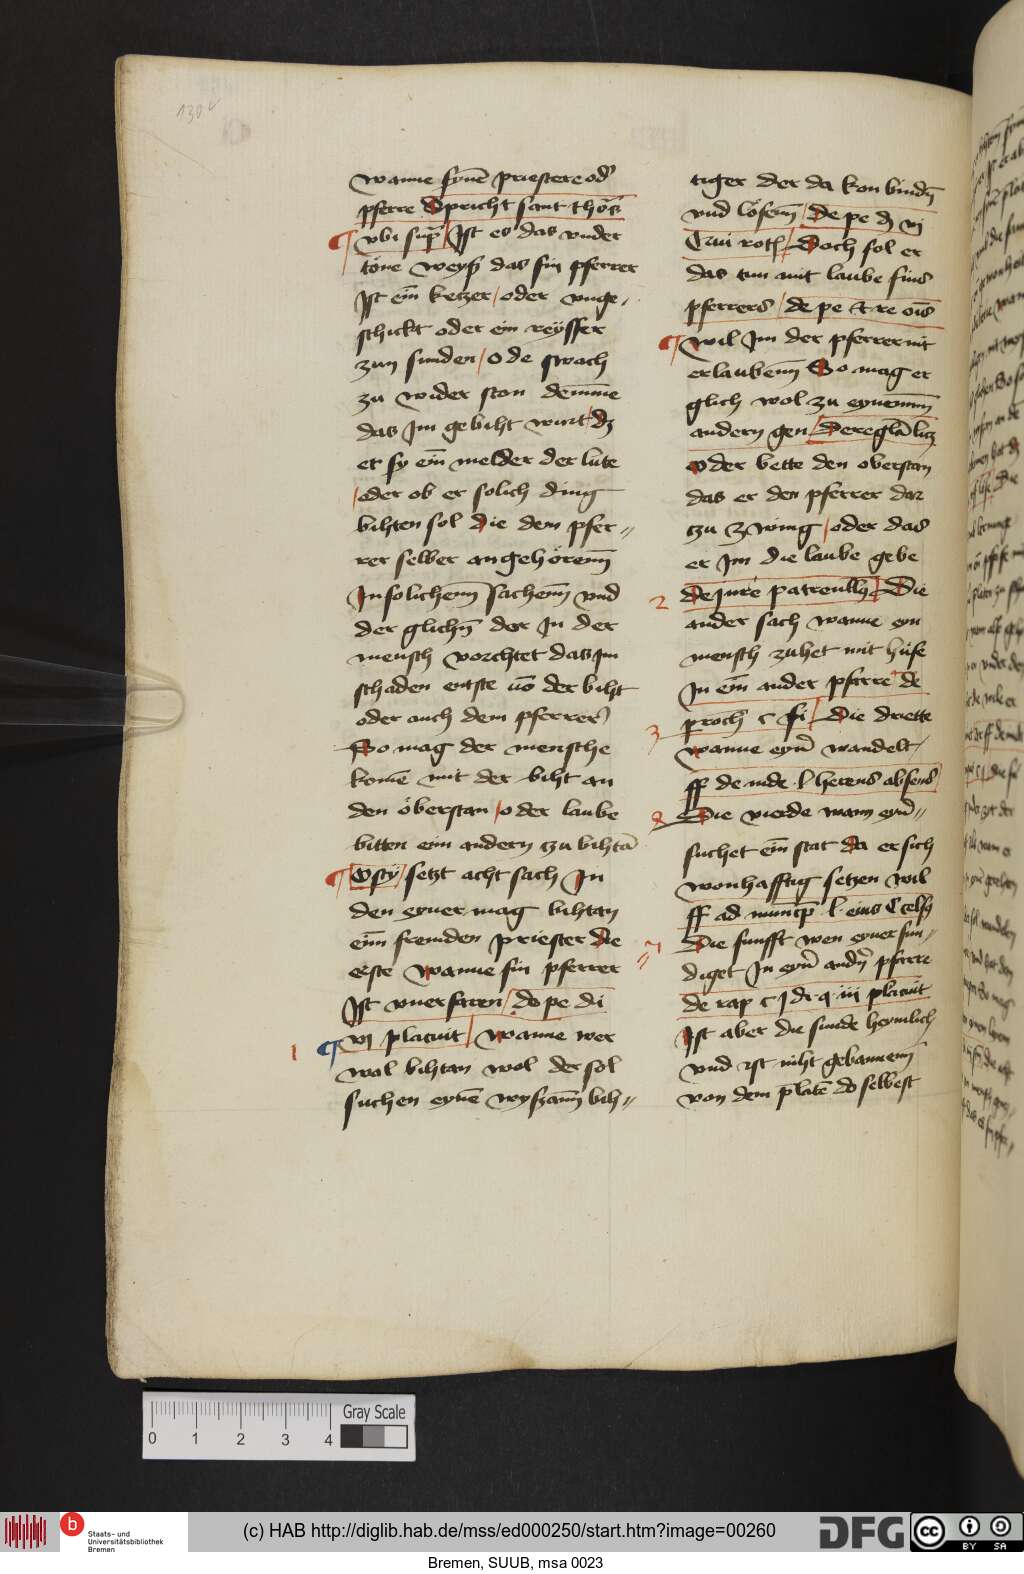 130v
wanne synē priestere od'
pferre Spricht sant thōs
vbi sup̄ Ist es das vnder
töne weyß das sin pferrer
Ist eīn ketzer / oder vnge-
schickt oder ein reÿsser
zun sunden / o de swach
zu wider ston demme
das Im gebiht wirt / dz
er sy eīn melder der lute
/ oder ob er solich ding
bihten sol die dem pfer=
rer selber an gehören̄
In solichen̄ sachen̄ vnd
der glichn̄ dor In der
mensch vorchtet das im
schaden entste vō der biht
oder auch dem pferrer
So mag der mensche
komē mit der biht an
den öberstan / o der laube
bitten ein andern zu bihtā
Osty / setzt acht sach In
den eyner mag bihtan
eim fremden priester die
erste wanne sin pferrer
Ist vnerfaren / de pe di
1 vj placuit / wanne wer
wol bihtan wol der sol
suchen eynē wyßann̄ bih=
tiger der da kon bindn̄
vnd lösen̄ / De pe dz vj
C Doch sol er
das tun mit laube sins
pferrers / de pe et re ōis
wil Im der pferrer nit
erlauben̄ So mag er
glich wol zu eynem̄
andern gen /
oder bette den oberstan
das er den pferrer dar
zu zwing / oder das
er Im die laube gebe
2 De Jure / Die
ander sach wanne eyn
mensch zuhet mit huse
In eīn ander pfarre de
3 proch c fi / Die driette
wanne eyn̄ wandelt /
ff de iude l herens absens
Die vierde wann eyn̄=
suchet eīn stat da er sich
wonhafftig setzen wil
ff ad municp̄ l eius C celsꝯ
Die funfft wen eyner sun=
diget In eyn̄ andn̄ pfarre
de rap c j di q iii placuit
Ist aber die sunde heymlich
vnd ist niht gebannem̄
von dem platē do selbest
0 1 2 3 4
Gray Scale
b Staats- und
Universitätsbibliothek
Bremen
(c) HAB http://diglib.hab.de/mss/ed000250/start.htm?image=00260
DFG
cc BY SA
Bremen, SUUB, msa 0023